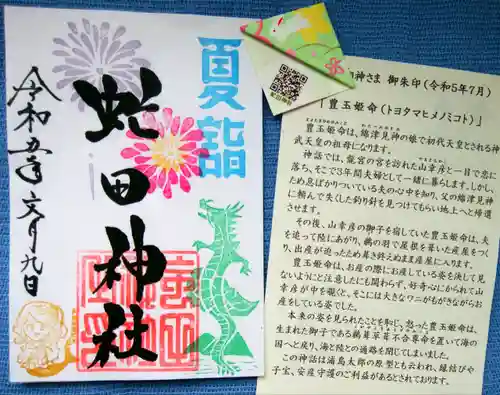 夏詣
蛇田神社
令和五年文月九日
神さま 御朱印(令和5年7月)
「豊玉姫命(トヨタマヒメノミコト)」
豊玉姫命は、綿津見神の娘で初代天皇とされる神
武天皇の祖母になります。
神話では、竜宮の宮を訪れた山幸彦と一目で恋に
落ち、そこで3年間夫婦として一緒に暮らします。しかし、
ため息ばかりついている夫の心中を知り、父の綿津見神
に頼んで失くした釣り針を見つけてもらい地上へと帰還
させます。
その後、山幸彦の御子を宿していた豊玉姫命は、夫
を追って陸にあがり、鵜の羽で屋根を葺いた産屋をつく
り、出産が迫ったため葺き終えぬまま産屋に入ります。
豊玉姫命は、お産の際にお産している姿を決して見
ないようにと注意したにも関わらず、好奇心にかられて山
幸彦が中を覗くと、そこには大きなワニがもがきながらお
産をしている姿でした。
本来の姿を見られたことを恥じ、怒った豊玉姫命は、
生まれた御子である鵜葺草葺不合尊命を置いて海の
国へと戻り、海と陸との通路を閉じてしまいました。
この神話は浦島太郎の原型とも云われ、縁結びや
子宝、安産守護のご利益があるとされております。